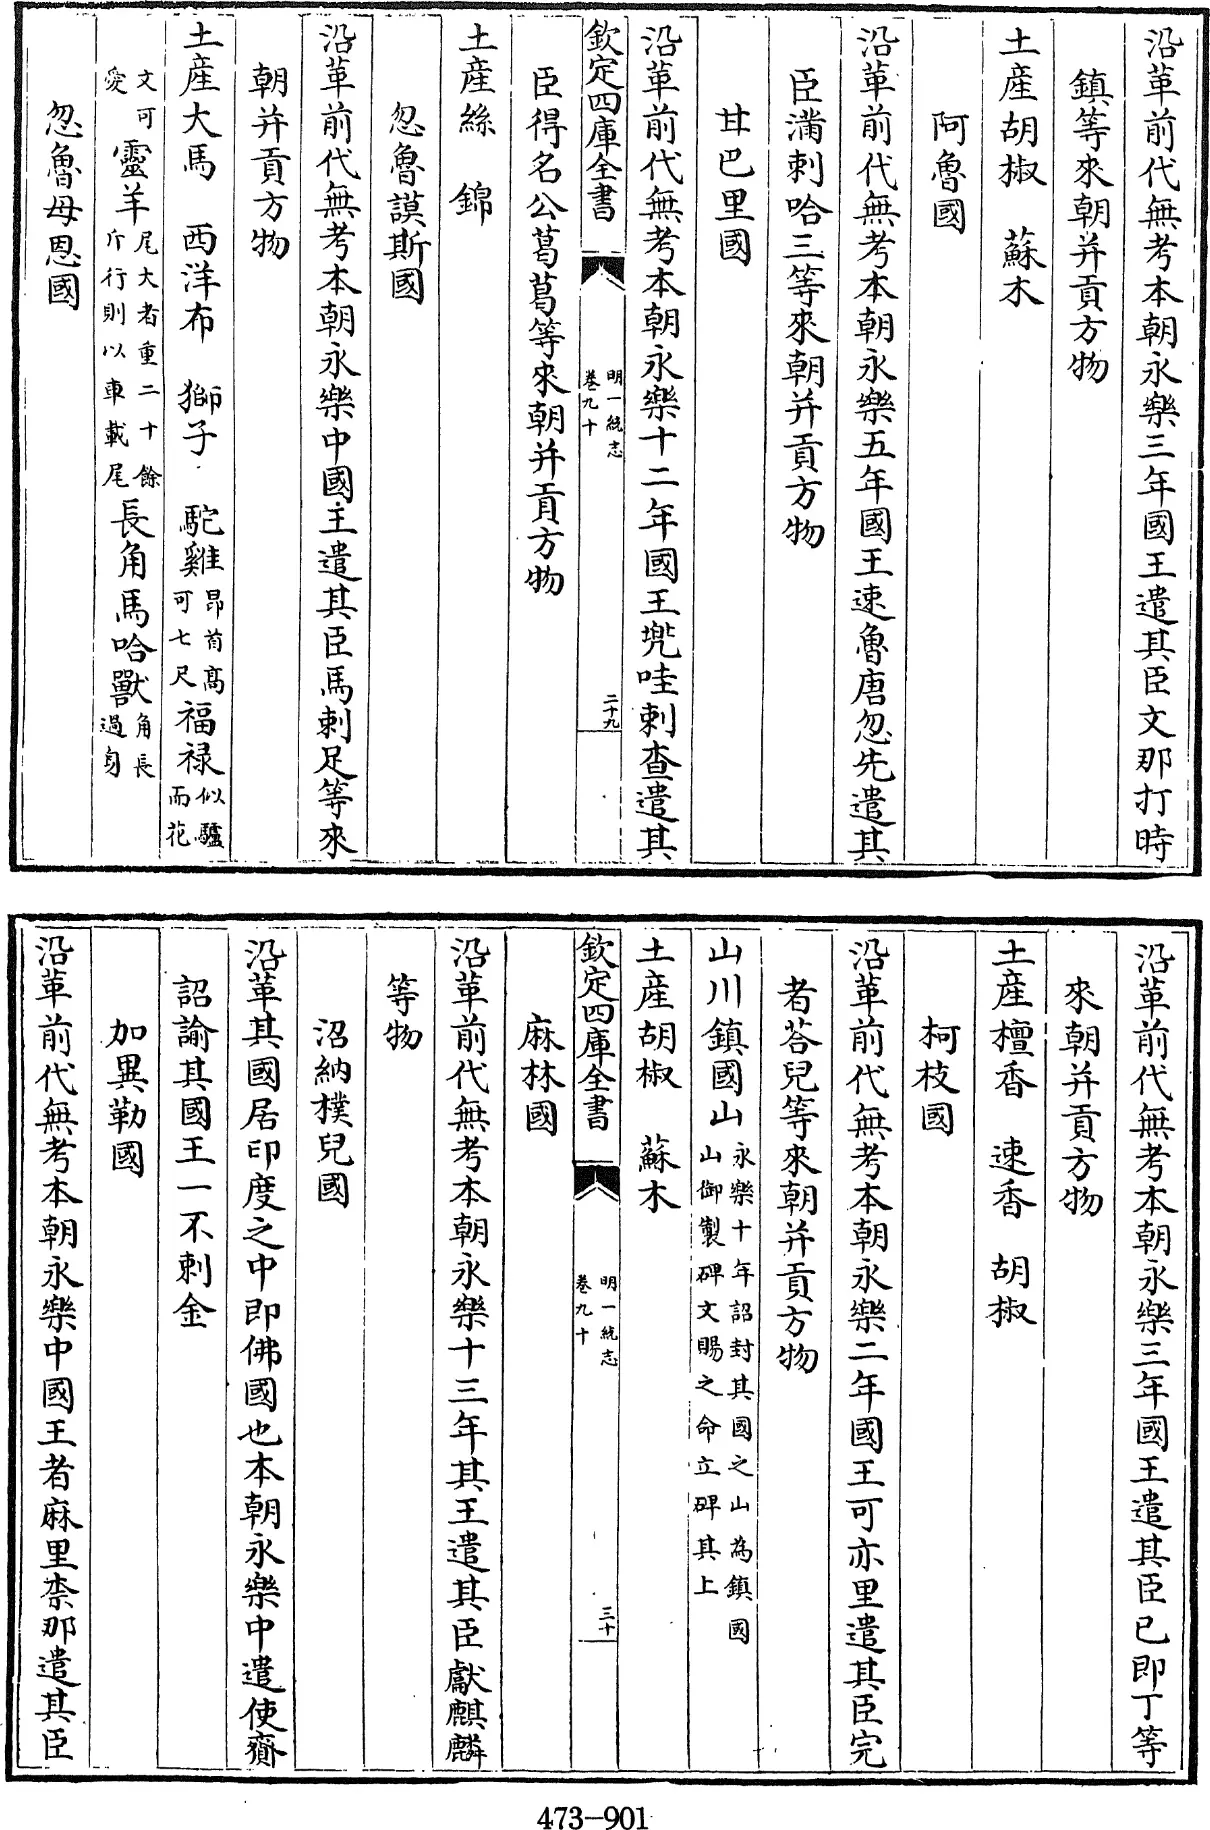 沿革前代無考本朝永樂三年國王遣其臣文那打時
鎮等來朝并貢方物
土産胡椒　蘇木
阿魯國
沿革前代無考本朝永樂五年國王速魯唐忽先遣其
臣滿剌哈三等來朝并貢方物
甘巴里國
沿革前代無考本朝永樂十二年國王兠哇剌查遣其
欽定四庫全書
明一統志
卷九十
二十九
臣得名公葛葛等來朝并貢方物
土産絲　錦
忽魯謨斯國
沿革前代無考本朝永樂中國主遣其臣馬剌足等來
朝并貢方物
土産大馬　西洋布　獅子　駝雞昂首髙可七尺福禄似驢而花
文可愛靈羊尾大者重二十餘斤行則以車載尾長角馬哈獸角長過身
忽魯母恩國
沿革前代無考本朝永樂三年國王遣其臣已即丁等
來朝并貢方物
土産檀香　速香　胡椒
柯枝國
沿革前代無考本朝永樂二年國王可亦里遣其臣完
者荅兒等來朝并貢方物
山川鎮國山永樂十年詔封其國之山為鎮國山御製碑文賜之命立碑其上
土産胡椒　蘇木
欽定四庫全書
明一統志
卷九十
三十
麻林國
沿革前代無考本朝永樂十三年其王遣其臣獻麒麟
等物
沼納樸兒國
沿革其國居印度之中即佛國也本朝永樂中遣使齎
詔諭其國王一不剌金
加異勒國
沿革前代無考本朝永樂中國王者麻里柰那遣其臣
473-901